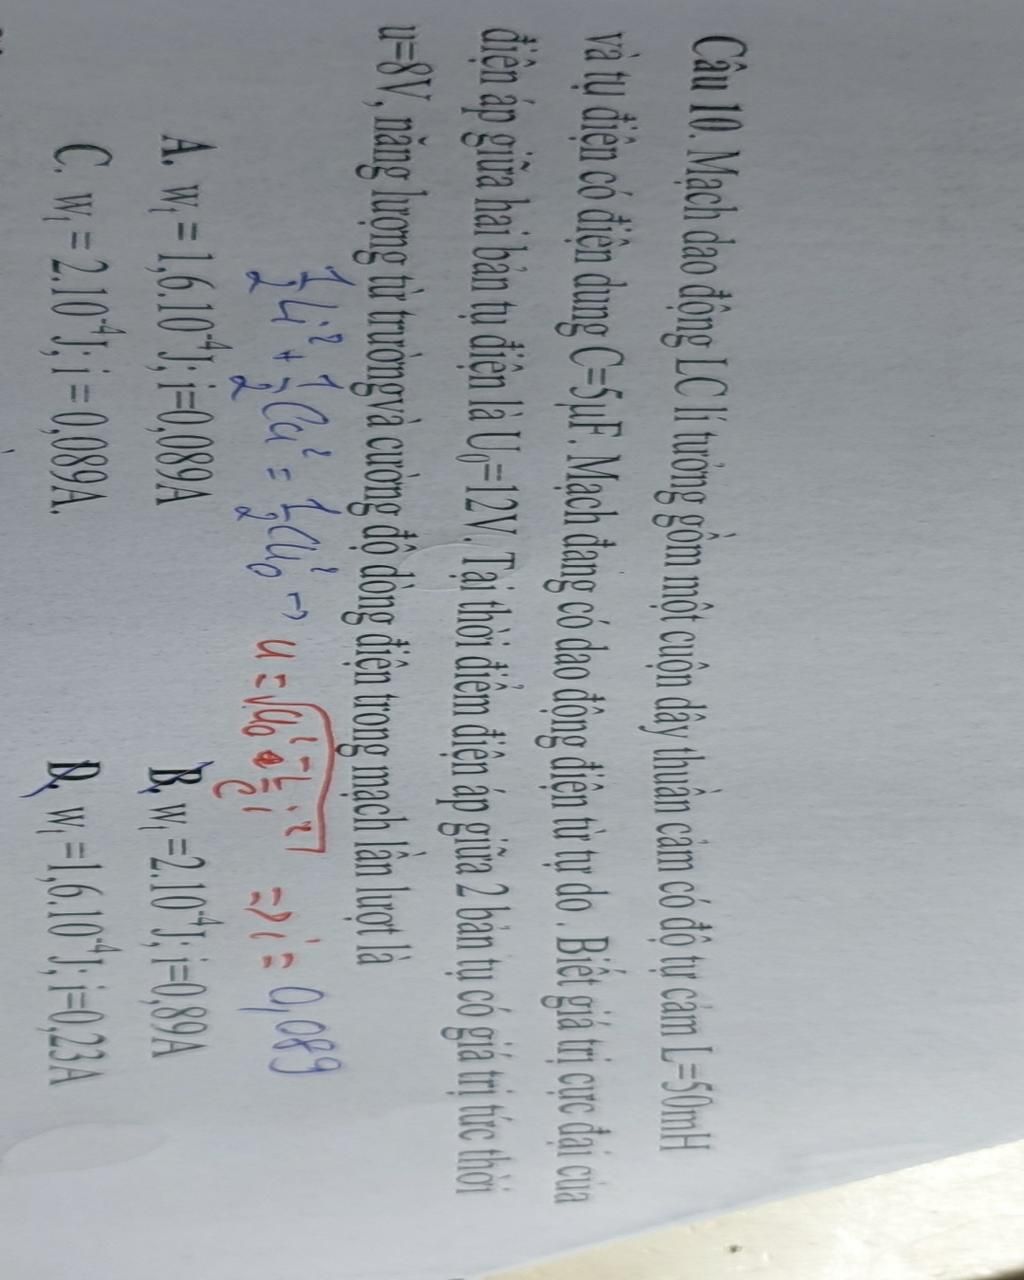 Câu 10. Mạch dao động LC lí tưởng gồm một cuộn dây thuần cảm có độ tự cảm L=50mH
và tụ điện có điện dung C=5μF. Mạch đang có dao động điện từ tự do . Biết giá trị cực đại của
điện áp giữa hai bản tụ điện là U₀=12V. Tại thời điểm điện áp giữa 2 bản tụ có giá trị tức thời
u=8V, năng lượng từ trường và cường độ dòng điện trong mạch lần lượt là
1/2 Li² + 1/2 Cu² = 1/2 Cu₀² → u = √(u₀² - L/C i²) => i = 0,089
A. wₜ = 1,6.10⁻⁴J; i=0,089A B. wₜ =2.10⁻⁴J; i=0,89A
C. wₜ = 2.10⁻⁴J; i = 0,089A. D. wₜ =1,6.10⁻⁴J; i=0,23A